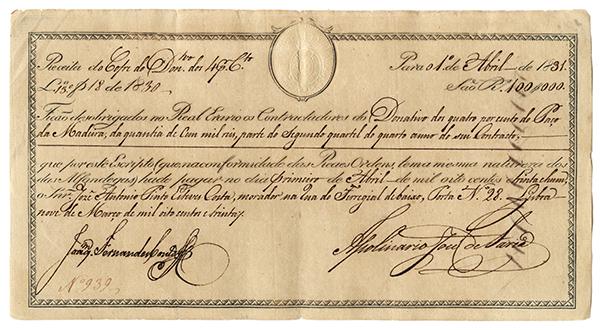 Receita do Cofre do Don.tivo dos 4 p. C.to Para o 1.º de Abril de 1831.
L.º 18 de 1830 São R.s 100$000.
Ficão desobrigados no Real Erario os Contractadores do Donativo dos quatro por cento do Paço
da Madeira, da quantia de Cem mil reis, parte do Segundo quartel do quarto anno do seu Contracto,
que por este Escripto (que na conformidade das Reaes Ordens, tem a mesma natureza dos
das Alfandegas) hade pagar no dia Primeiro de Abril de mil oito centos trinta e hum,
o Snr. José Antonio Pinto Esteves Costa, morador na Rua do Ferregial de baixo, Porta N.º 28. Lisboa
nove de Março de mil oito centos e trinta.
Joaq. Fernandes Apolinario José de Faria
N.º 939